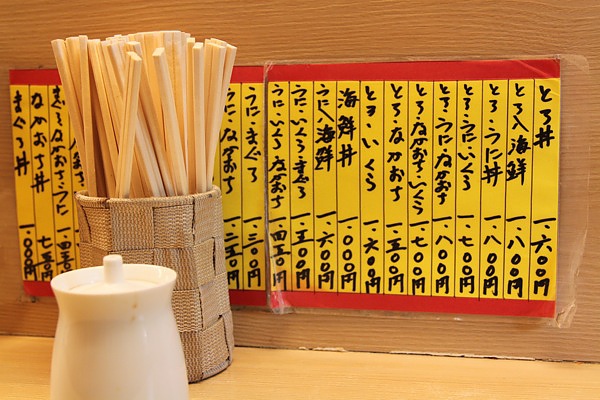 とろ丼 一、六〇〇円
とろ入海鮮 一、八〇〇円
とろ・うに丼 一、八〇〇円
とろ・うに・いくら 一、七〇〇円
とろ・うに・なかおち 一、八〇〇円
とろ・なかおち・いくら 一、七〇〇円
とろ・なかおち 一、五〇〇円
とろ・いくら 一、六〇〇円
海鮮丼 一、〇〇〇円
うに入海鮮 一、六〇〇円
うに・いくら・まぐろ 一、五〇〇円
うに・いくら・なかおち 一、四五〇円
うに・まぐろ 一、三〇〇円
うに・なかおち 一、二五〇円
なかおち・うに 一、四五〇
なかおち丼 七五〇円
まぐろ丼 一、〇〇〇円